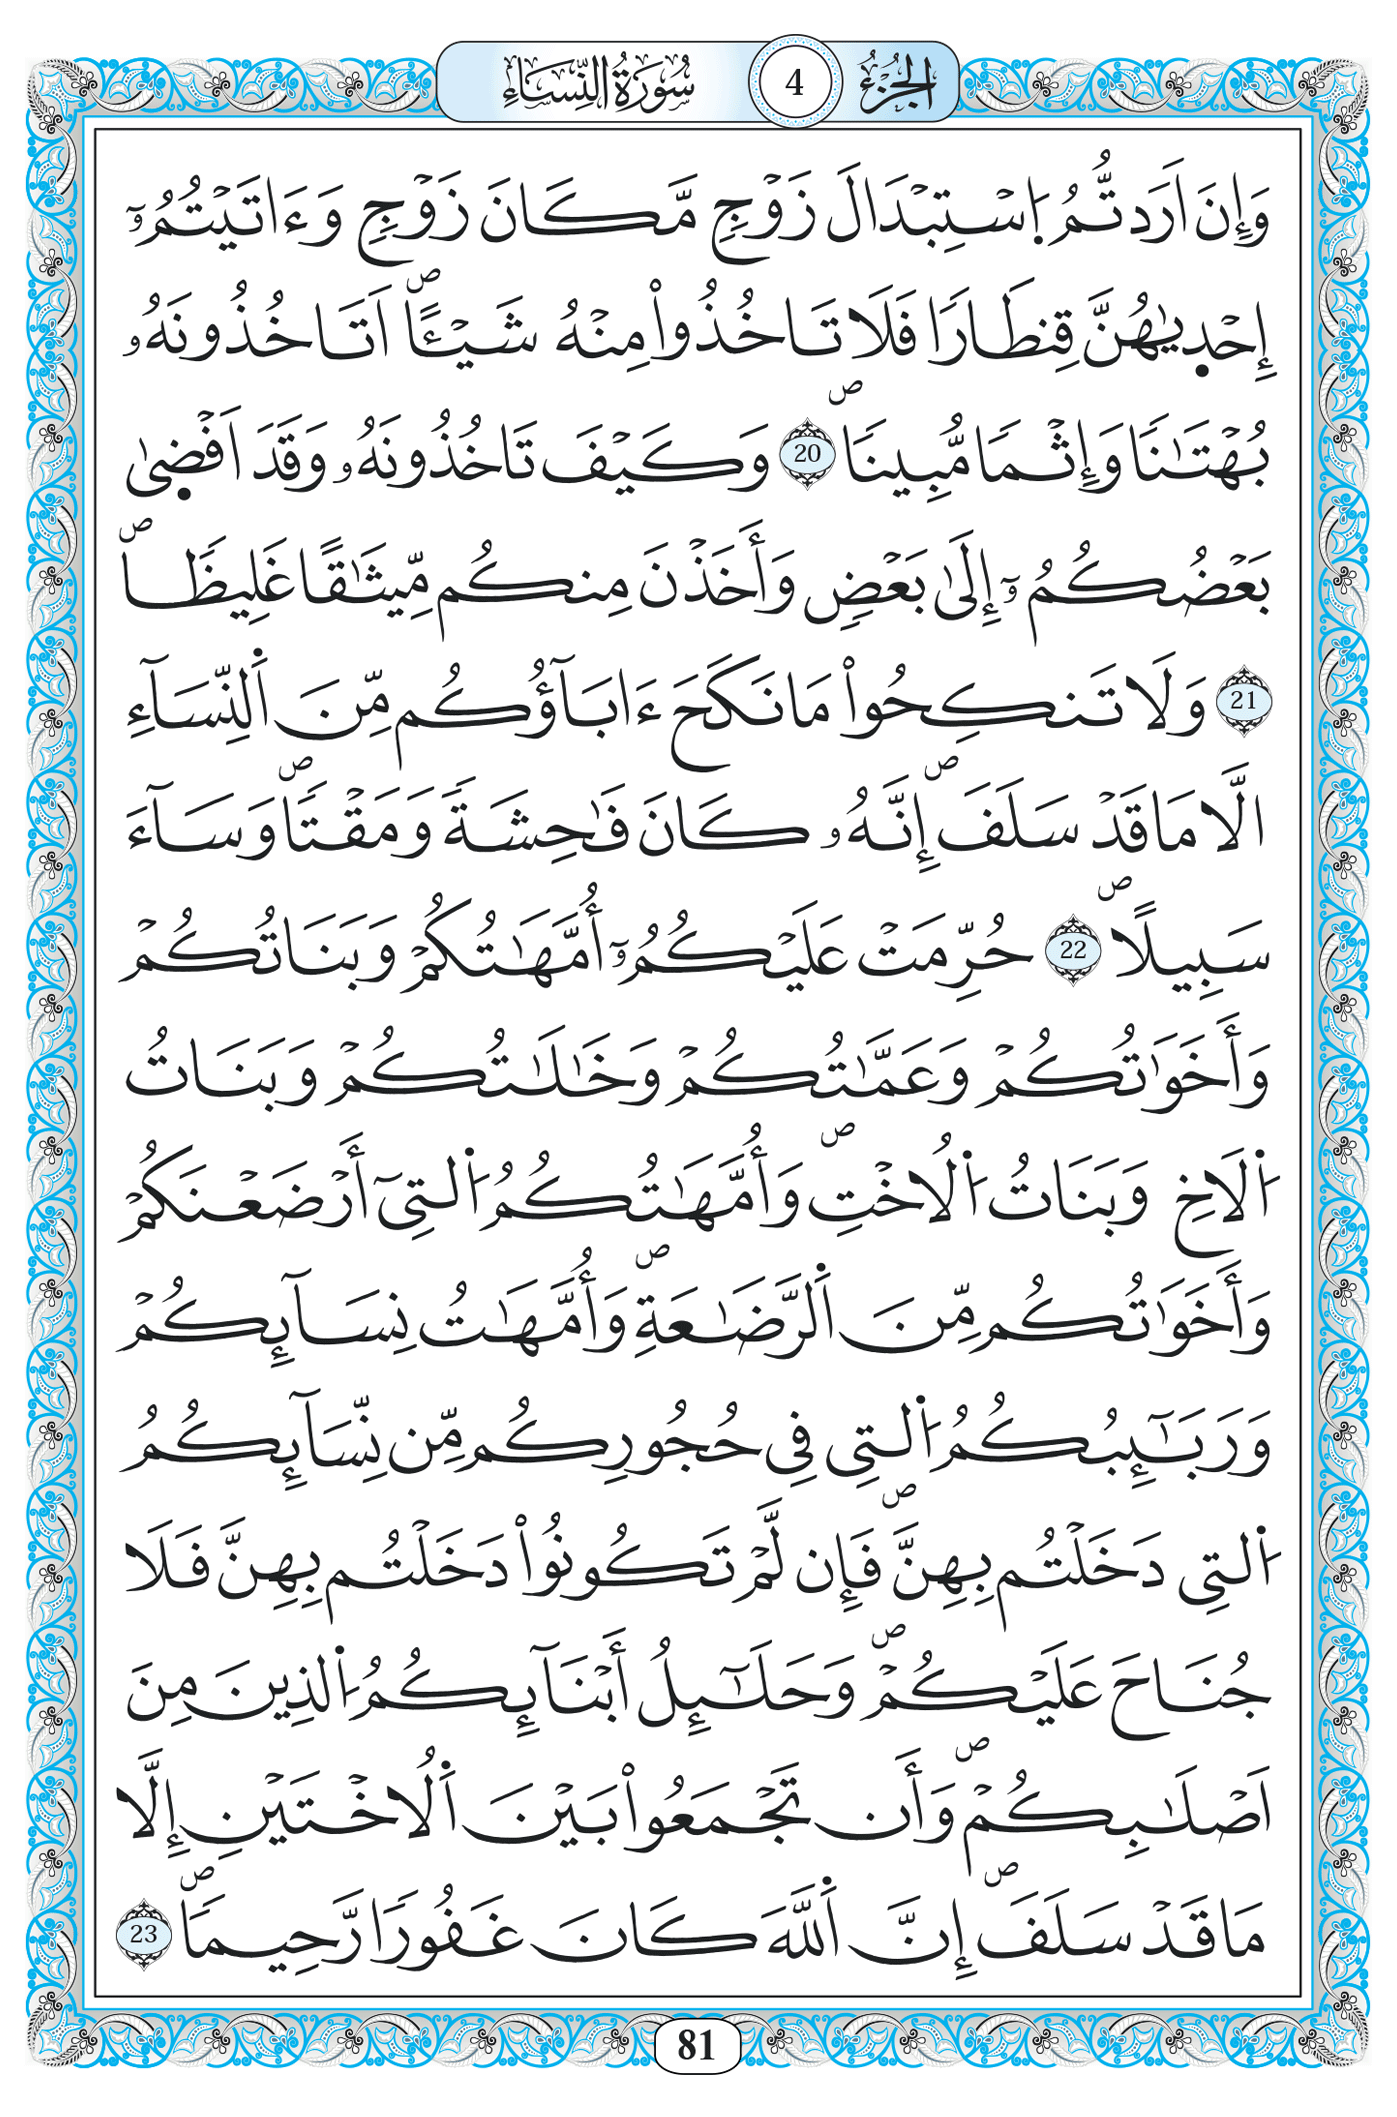 الجزء 4 سورة النساء
وَإِنَ اَرَدتُّمُ اِ۪سْتِبْدَالَ زَوْجٖ مَّكَانَ زَوْجٖ وَءَاتَيْتُمُۥٓ
إِحْد۪يٰهُنَّ قِنطَاراٗ فَلَا تَاخُذُواْ مِنْهُ شَيْـٔاًۖ اَتَاخُذُونَهُۥ
بُهْتَٰناٗ وَإِثْماٗ مُّبِيناٗۖ 20 وَكَيْفَ تَاخُذُونَهُۥ وَقَدَ اَفْض۪ىٰ
بَعْضُكُمُۥٓ إِلَىٰ بَعْضٖ وَأَخَذْنَ مِنكُم مِّيثَٰقاً غَلِيظاٗۖ
21 وَلَا تَنكِحُواْ مَا نَكَحَ ءَابَآؤُكُم مِّنَ اَ۬لنِّسَآءِ
الَّا مَا قَدْ سَلَفَۖ إِنَّهُۥ كَانَ فَٰحِشَةٗ وَمَقْتاٗۖ وَسَآءَ
سَبِيلاًۖ 22 حُرِّمَتْ عَلَيْكُمُۥٓ أُمَّهَٰتُكُمْ وَبَنَاتُكُمْ
وَأَخَوَٰتُكُمْ وَعَمَّٰتُكُمْ وَخَٰلَٰتُكُمْ وَبَنَاتُ
اُ۬لَاخِ وَبَنَاتُ اُ۬لُاخْتِۖ وَأُمَّهَٰتُكُمُ اُ۬لتِىٓ أَرْضَعْنَكُمْ
وَأَخَوَٰتُكُم مِّنَ اَ۬لرَّضَٰعَةِۖ وَأُمَّهَٰتُ نِسَآئِكُمْ
وَرَبَٰٓئِبُكُمُ اُ۬لتِى فِى حُجُورِكُم مِّن نِّسَآئِكُمُ
اُ۬لتِى دَخَلْتُم بِهِنَّۖ فَإِن لَّمْ تَكُونُواْ دَخَلْتُم بِهِنَّ فَلَا
جُنَاحَ عَلَيْكُمْۖ وَحَلَٰٓئِلُ أَبْنَآئِكُمُ اُ۬لذِينَ مِنَ
اَصْلَٰبِكُمْۖ وَأَن تَجْمَعُواْ بَيْنَ اَ۬لُاخْتَيْنِ إِلَّا
مَا قَدْ سَلَفَۖ إِنَّ اَ۬للَّهَ كَانَ غَفُوراٗ رَّحِيماٗۖ 23
81